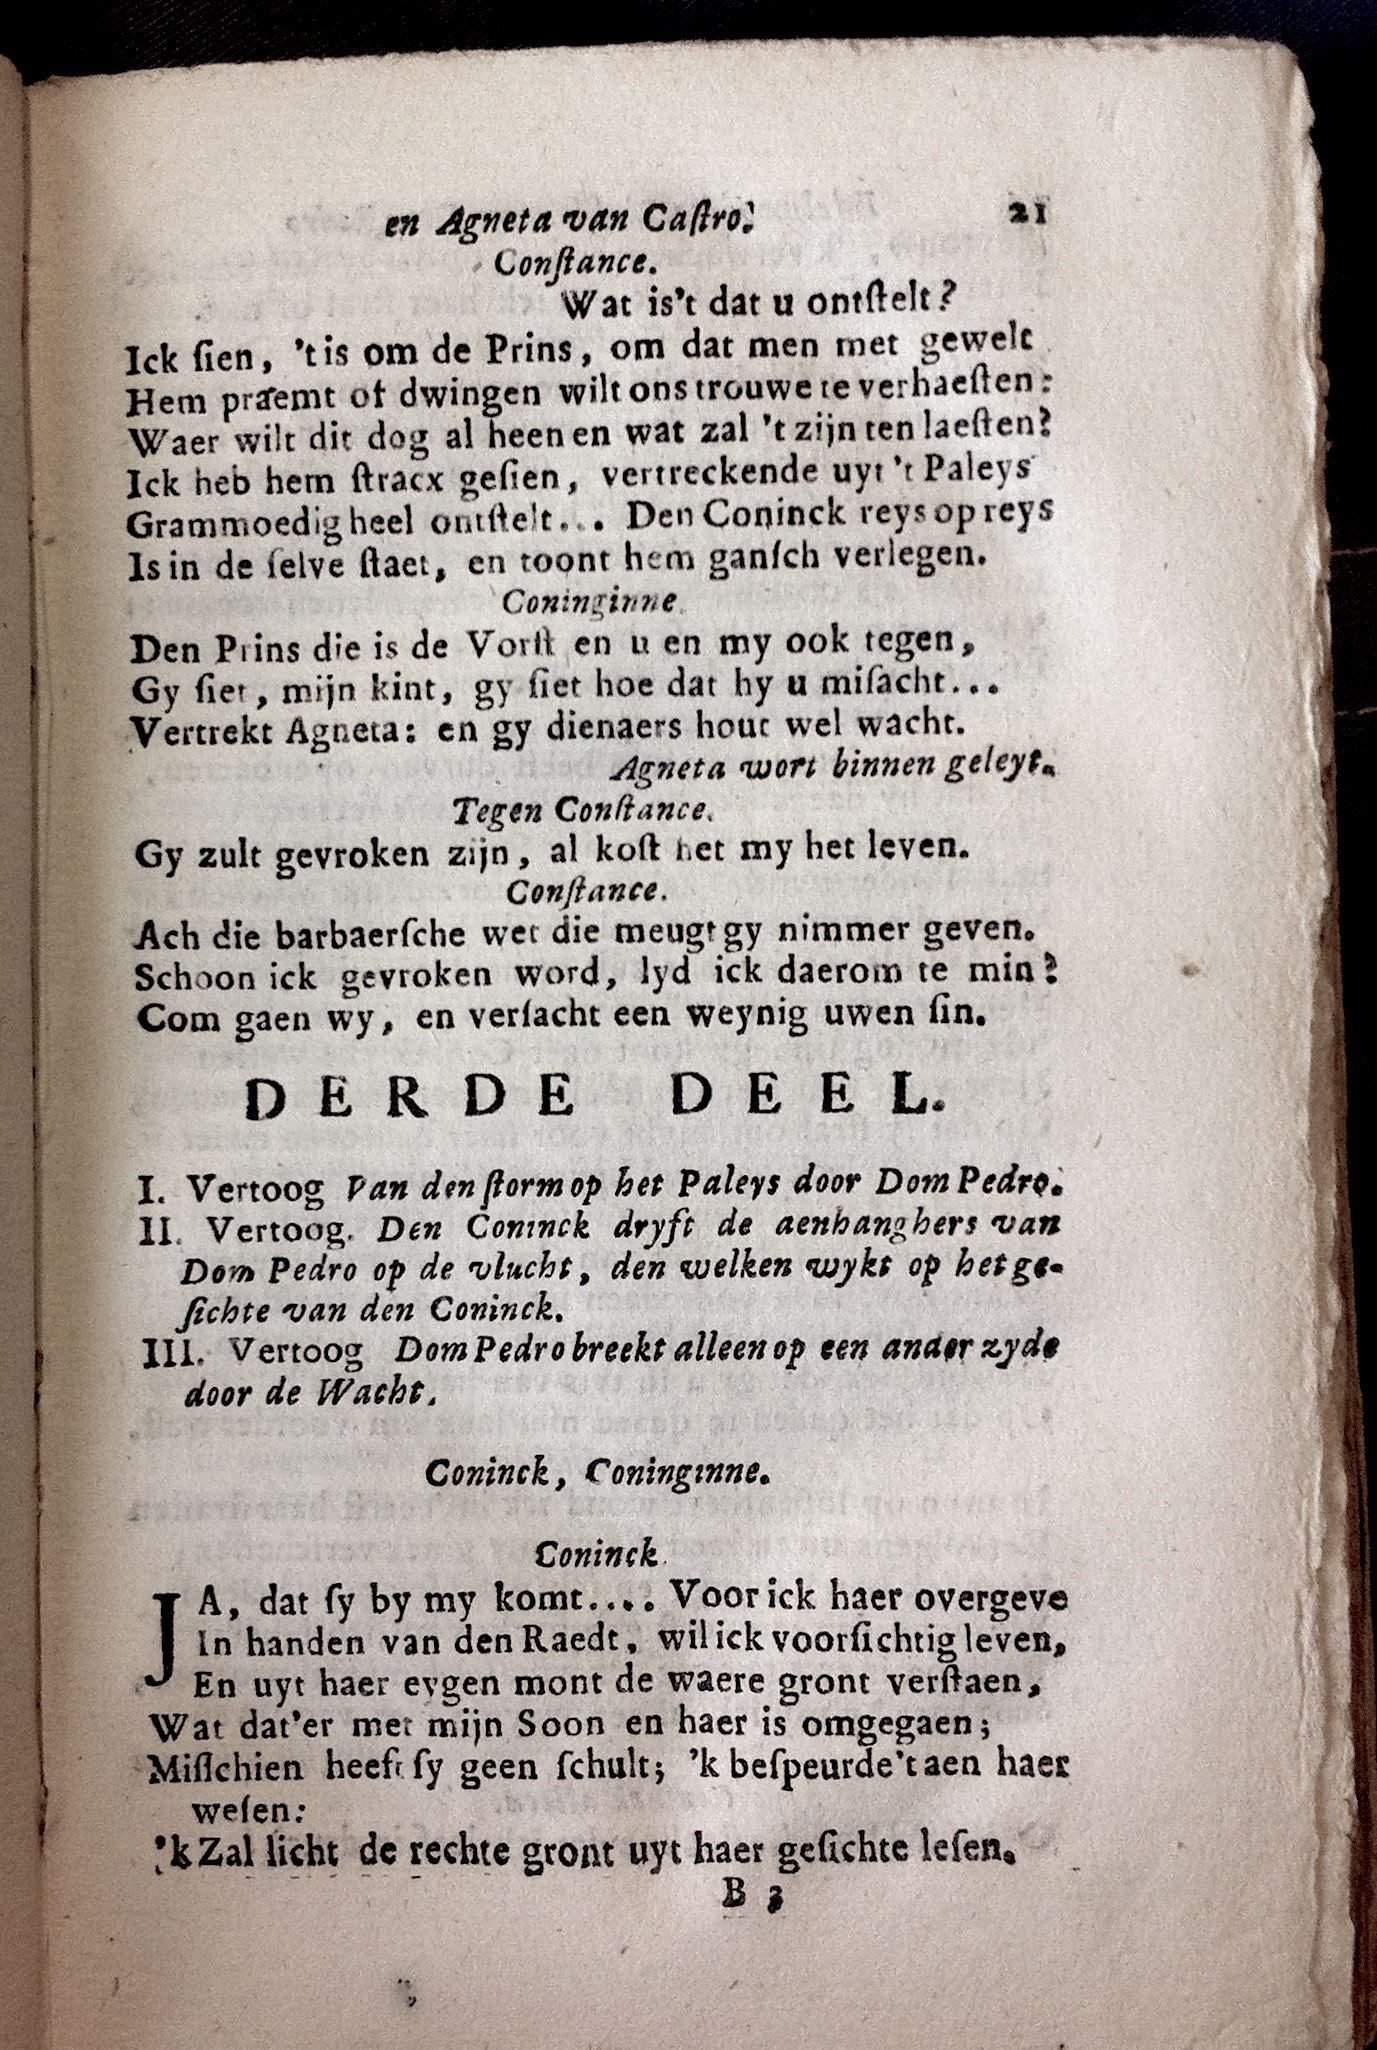 en Agneta van Caſtro. 21
Conſtance.
Wat is't dat u ontſtelt?
Ick ſien, 't is om de Prins, om dat men met gewelt
Hem praemt of dwingen wilt ons trouwe te verhaeſten:
Waer wilt dit dog al heen en wat zal 't zijn ten laeſten?
Ick heb hem ſtracx geſien, vertreckende uyt 't Paleys
Grammoedig heel ontſtelt... Den Coninck reys op reys
Is in de ſelve ſtaet, en toont hem ganſch verlegen.
Coninginne.
Den Prins die is de Vorſt en u en my ook tegen,
Gy ſiet, mijn kint, gy ſiet hoe dat hy u miſacht...
Vertrekt Agneta: en gy dienaers hout wel wacht.
Agneta wort binnen geleyt.
Tegen Conſtance.
Gy zult gevroken zijn, al koſt het my het leven.
Conſtance.
Ach die barbaerſche wet die meugt gy nimmer geven.
Schoon ick gevroken word, lyd ick daerom te min?
Com gaen wy, en verſacht een weynig uwen ſin.
DERDE DEEL.
I. Vertoog Van den ſtorm op het Paleys door Dom Pedro.
II. Vertoog. Den Coninck dryft de aenhanghers van
Dom Pedro op de vlucht, den welken wykt op het ge-
ſichte van den Coninck.
III. Vertoog Dom Pedro breekt alleen op een ander zyde
door de Wacht.
Coninck, Coninginne.
Coninck.
JA, dat ſy by my komt.... Voor ick haer overgeve
In handen van den Raedt, wil ick voorſichtig leven,
En uyt haer eygen mont de waere gront verſtaen,
Wat dat'er met mijn Soon en haer is omgegaen;
Miſſchien heeft ſy geen ſchult; 'k beſpeurde 't aen haer
weſen:
'k Zal licht de rechte gront uyt haer geſichte leſen.
B 3